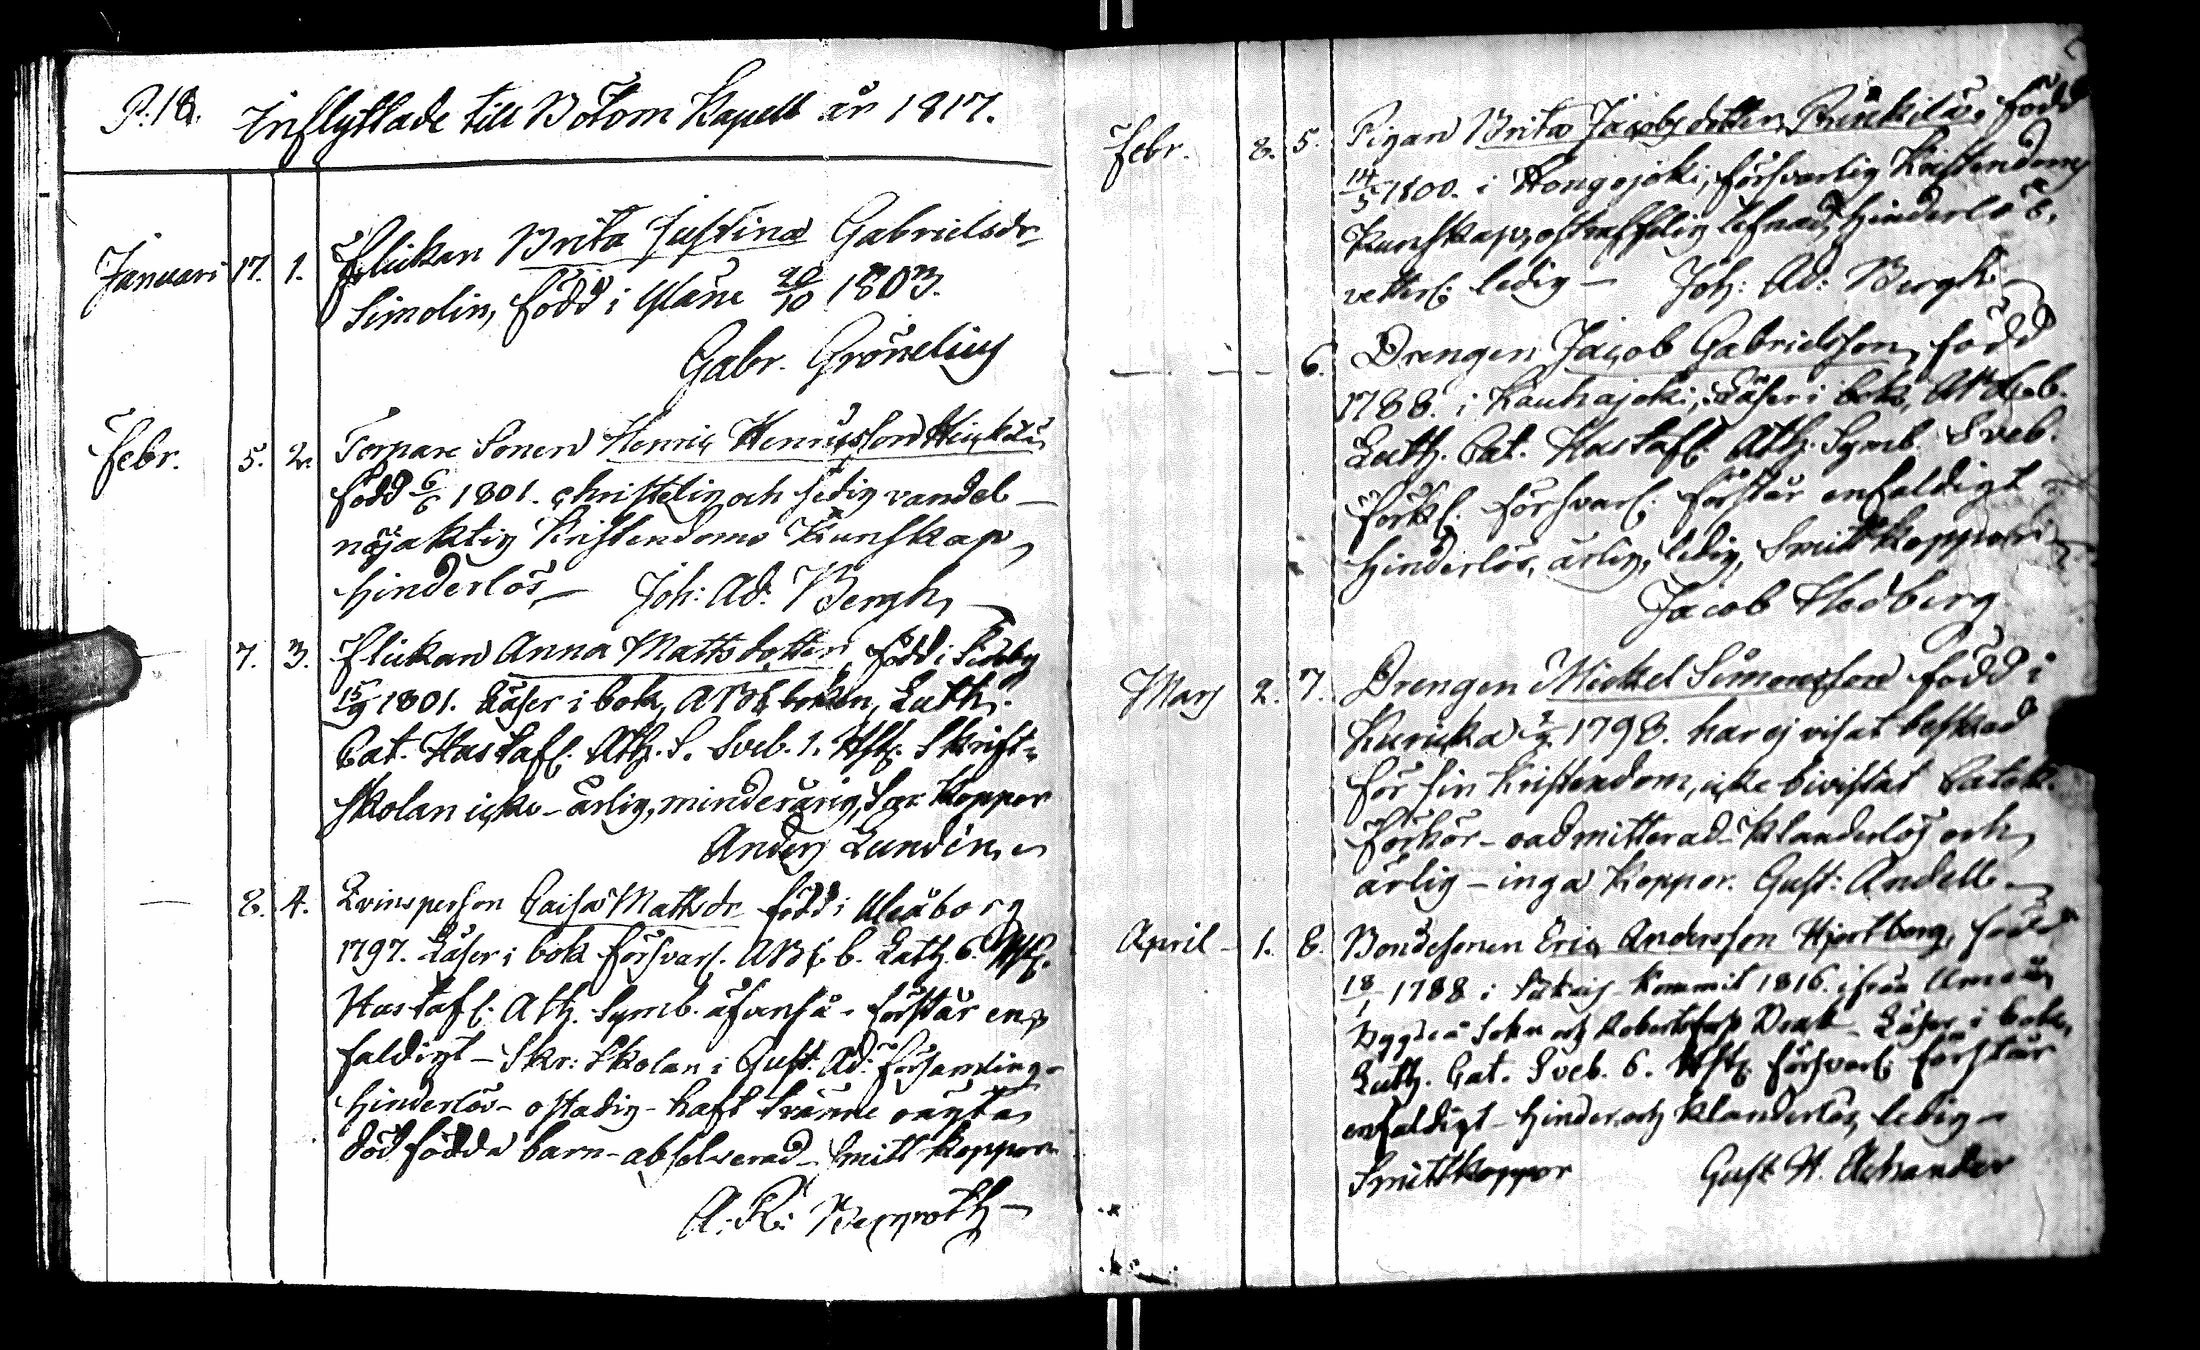 P. 18. Inflyttade till Bötom Kapell år 1817.
Januari 17. 1. Flickan Brita Justina Gabrielsdr
Simolin, född i Yläne 20/10 1803.
Gabr. Grönelius
Febr. 5. 2. Torpare Sonen Henric Henricsson
född 6/6 1801. christelig och sedig vandel –
nöjaktig Kristendoms Kunskap,
hinderlös – Joh: Ad: Bergh
7. 3. Flickan Anna Mattsdotter, född i Sideby
15/9 1801. Läser i bok, ABC boken, Luth.
Cat. Hustafl. Ath. S. Sveb. 1. Hst. Skrift-
skolan icke – ärlig, minderårig, koppor
Anders Lundén
— 8. 4. Qvinsperson Caisa Mattsdr född i Uleåborg
1797. Läser i bok försvarl. ABC b. Luth. C.
Hustafl. Ath. Symb. äfvenså – förstår en-
faldigt – Skr: Skolan i Gust: Ad: Församling –
hinderlös – ostadig – haft tvänne oägta
dödfödda barn – absolverad – Smitt koppor
A: R: Bergroth –
Febr. 8. 5. Pigan Brita Jacobsdotter född
14/5 1800. i Kongojoki, försvarlig Kristendoms
Kunskap, ostraffelig lefnad, hinderlös,
vetterl: ledig – Joh: Ad: Bergh
— — 6. Drengen Jacob Gabrielsson, född
1788. i Kauhajoki, Läser i bok, ABC b.
Luth. Cat. Hustafl. Ath. Symb. Sveb.
förkl. försvarl: förstår enfaldigt –
hinderlös, ärlig, ledig, Smittkoppor
Jacob Hedberg
Mars 2. 7. Drengen Mickel Simonsson född i
Kurikka 1798. har ej visat besked
för sin Kristendom, icke bivistat Catek.
förhör – oadmitterad – Klanderlös och
ärlig – inga Koppor. Gust: Andell –
April – 1. 8. Bondesonen Eric Andersson Hjortberg, född
18/1 1788 i kommit 1816. ifrån Umeå
Bygdeå Sokn och Robertsfors Bruk – Läser i bok,
Luth. Cat. Sveb. 6. Hst. försvarl: förstår
enfaldigt – hinder och klanderlös, ledig –
Smittkoppor Gust. H.